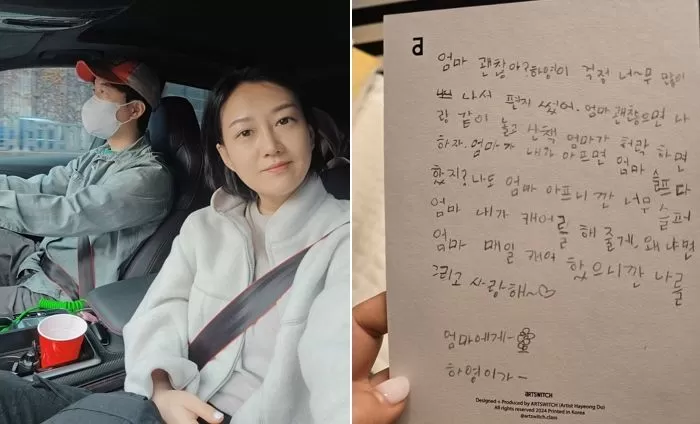 a
엄마 괜찮아? 하영이 걱정 너~무 많이
나서 편지 썼어. 엄마 괜찮으면 나
랑 같이 놀고 산책 엄마가 허락 하면
하자. 엄마가 내가 아프면 엄마 슬프다
했지? 나도 엄마 아프니깐 너무 슬퍼
엄마 내가 캐어를 해 줄게. 왜냐면
엄마 매일 캐어 했으니깐 나를
그리고 사랑해~♡
엄마에게-
하영이가-
ARTSWITCH
Designed + Produced by ARTSWITCH (Artist Hayeong Du)
All rights reserved 2024 Printed in Korea
@artswitch.class